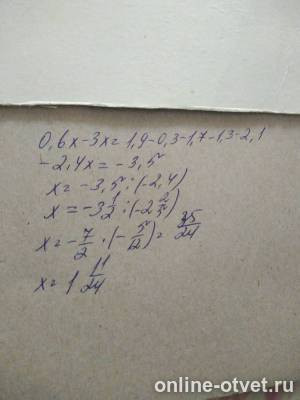 0,6x-3x=1,9-0,3-1,7-1,3-2,1
-2,4x=-3,5
x=-3,5:(-2,4)
x=-3 1/2:(-2 2/5)
x=-7/2·(-5/12)=35/24
x=1 11/24
online-otvet.ru